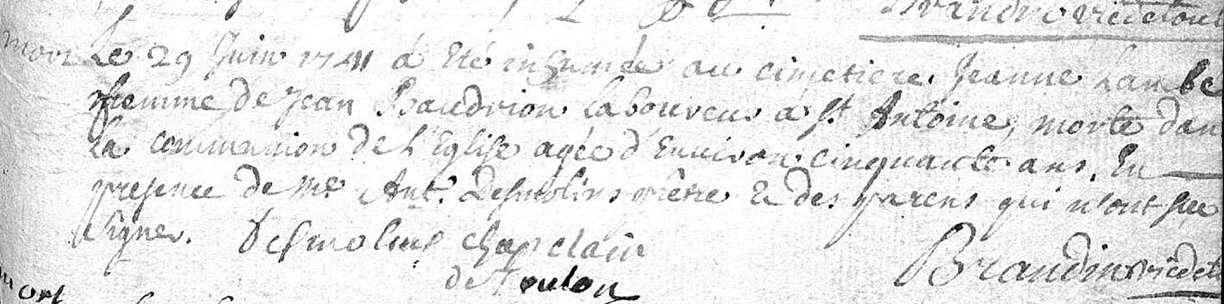 mort Le 29 Juin 1741 a Eté inhumée au cimetiere Jeanne Lambe
femme de Jean Baudrion Laboureur a St Antoine, morte dan
la communion de L'Eglise agée d'Environ cinquante ans. En
presence de Mre Ant. Desmolins prêtre & des parens qui n'ont sçu
signer. Desmolins chapelain Brandin
de Toulon
mort